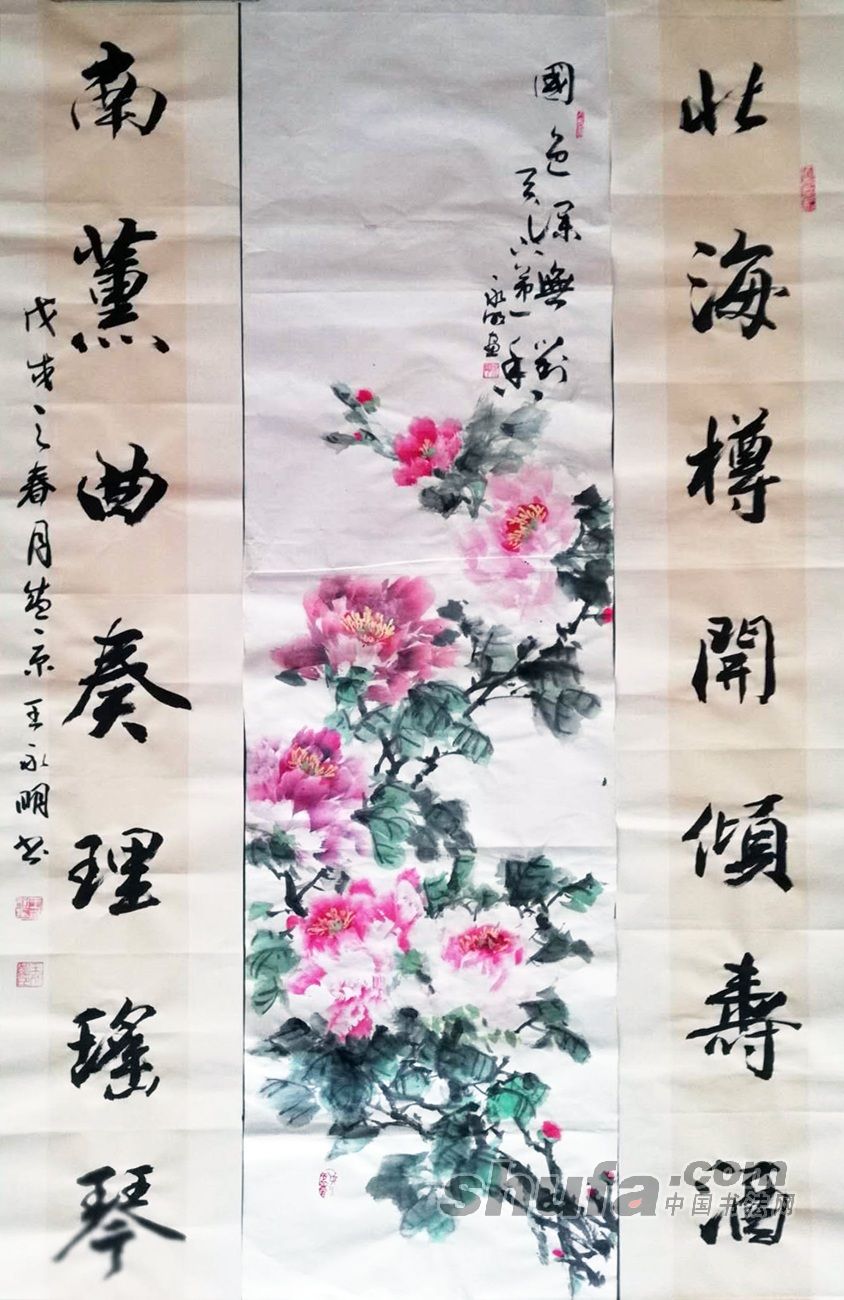 北海樽開傾壽酒
國色深無對
天香第一種
永明畫
南薰曲奏理瑤琴
戊戌之春月燕京王永明书
shufa.com
中国书法网